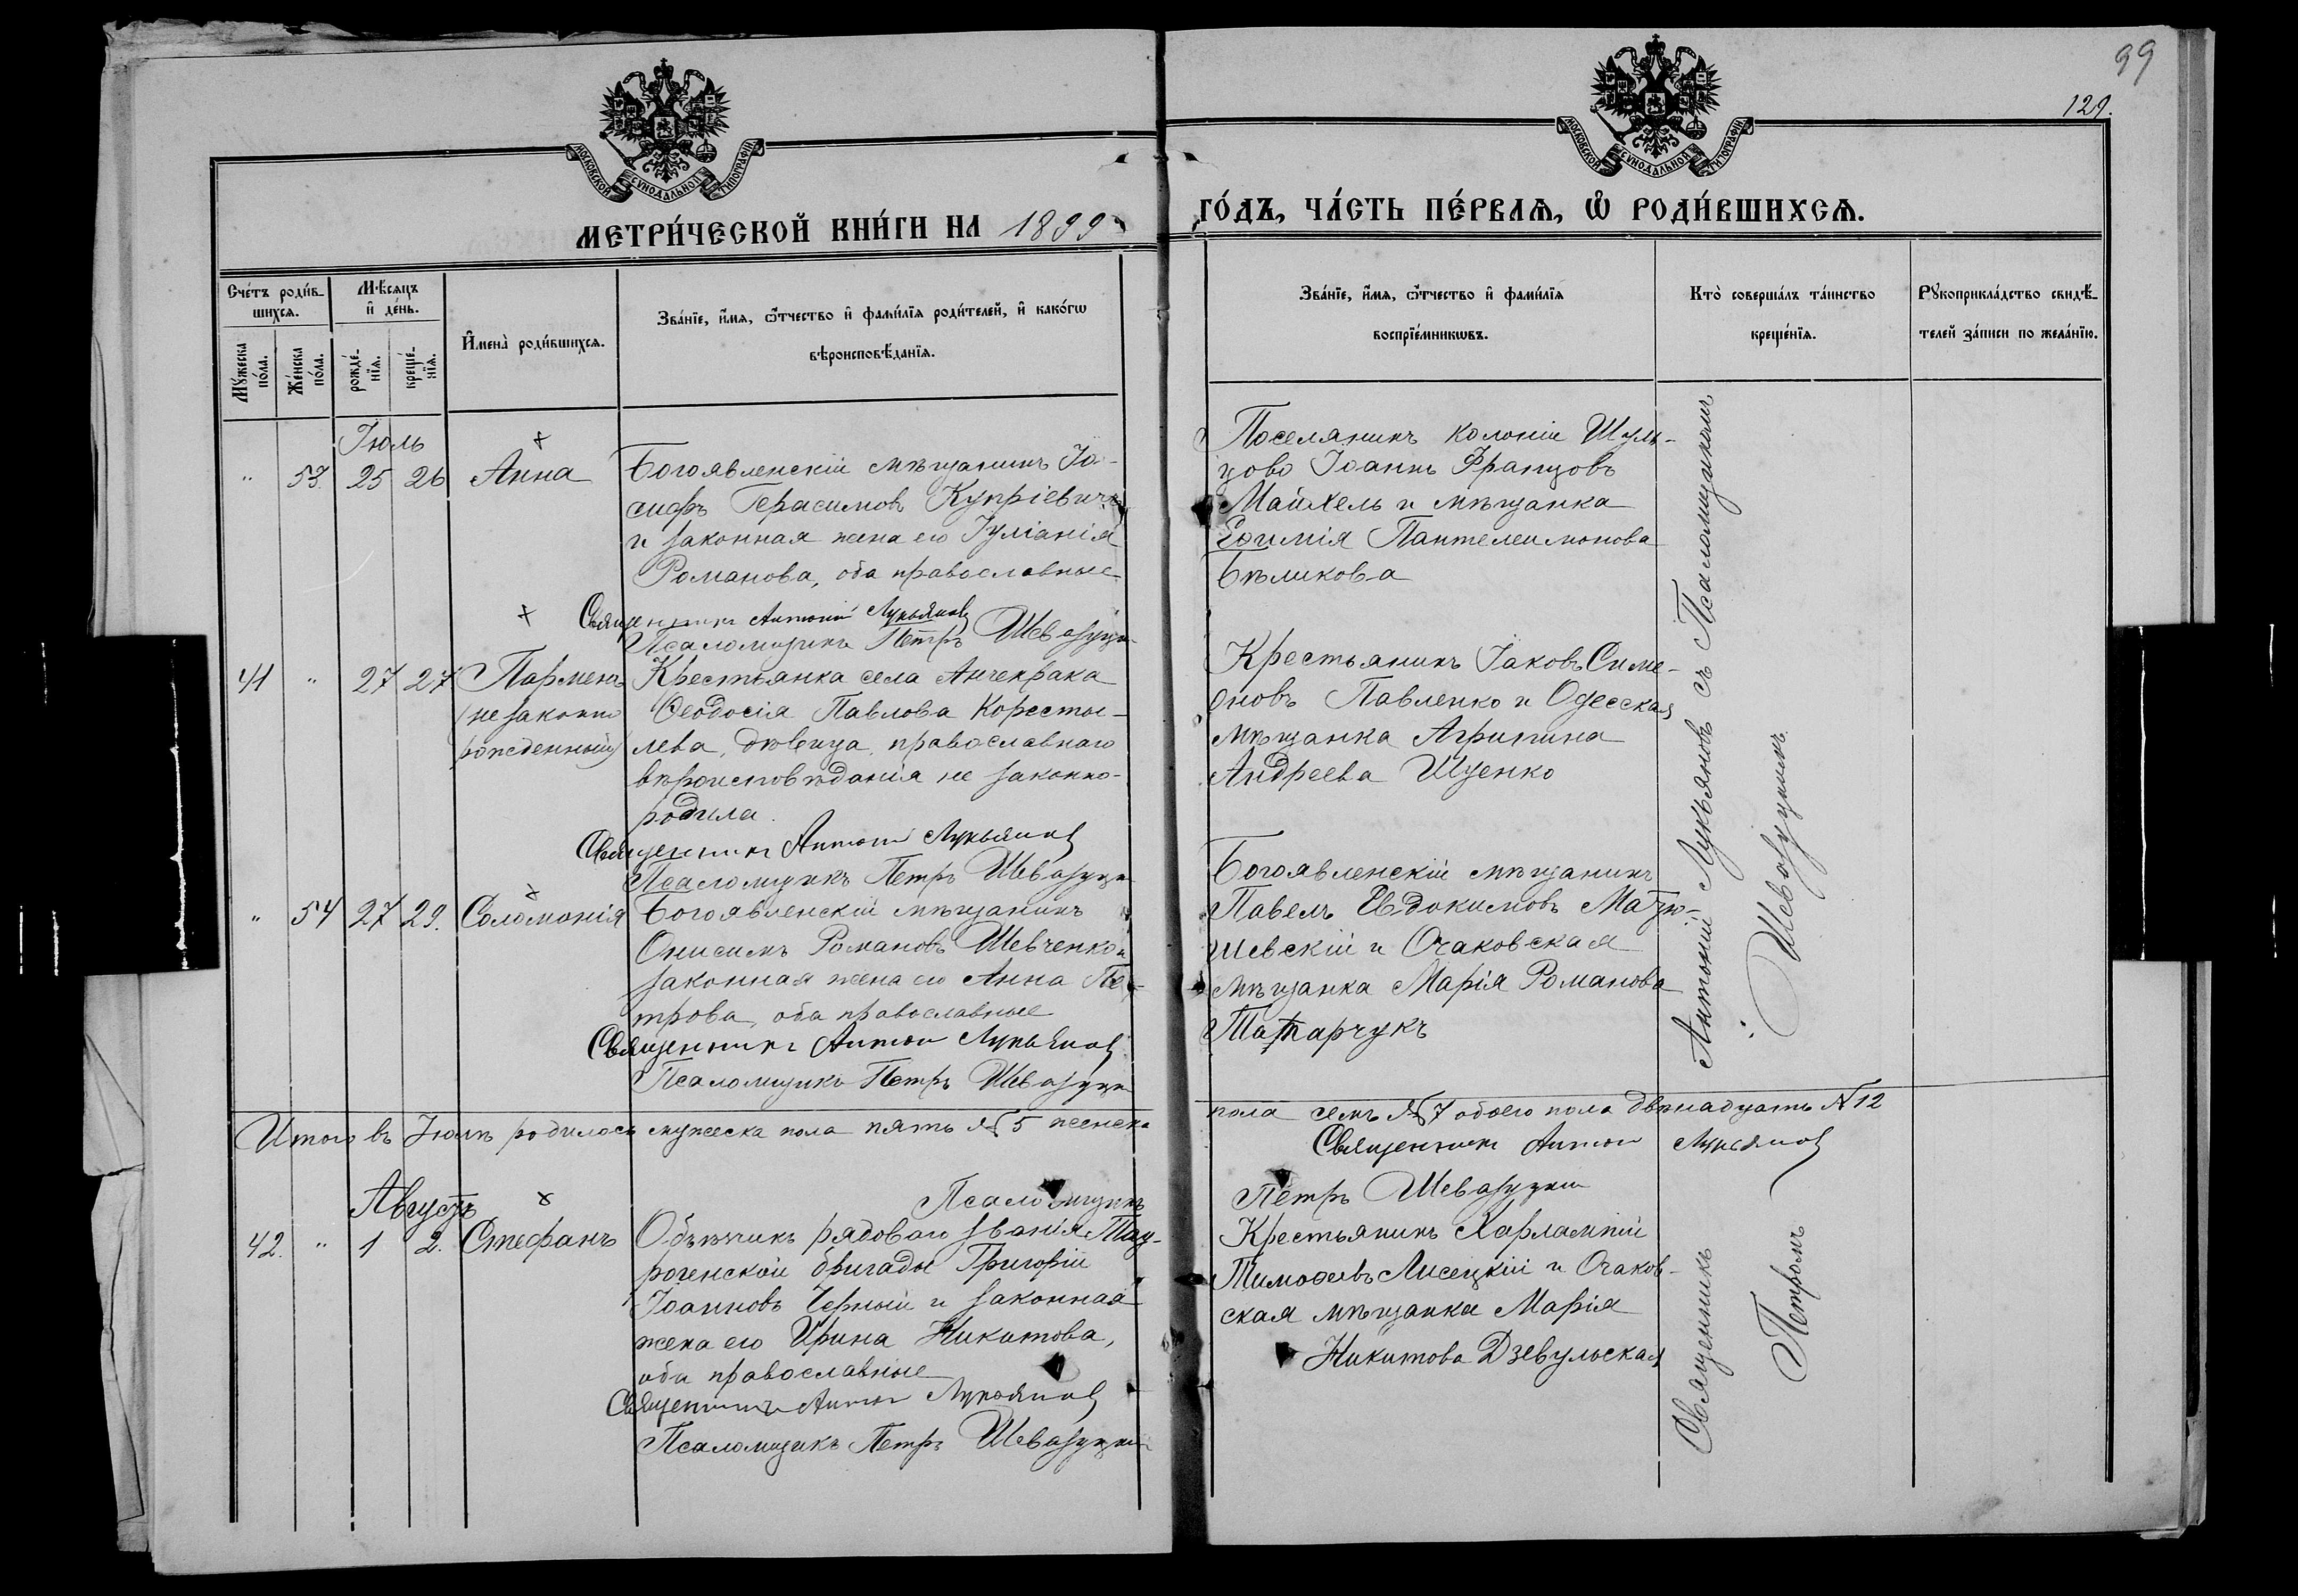 99
129.
МОСКОВСКОЙ СѴНОДАЛЬНОЙ ТИПОГРАФІИ
МОСКОВСКОЙ СѴНОДАЛЬНОЙ ТИПОГРАФІИ
МЕТРИ́ЧЕСКОЙ КНИ́ГИ НА 1899
ГО́ДЪ, ЧА́СТЬ ПЕ́РВАѦ, Ѡ РОДИ́ВШИХСѦ.
Сче́тъ роди́в-
шихсѧ.
Мꙋ́жеска
по́ла.
Же́нска
по́ла.
Мѣ́сѧцъ
и҆ де́нь.
рожде́-
нїѧ.
креще́-
нїѧ.
И҆мена̀ роди́вшихсѧ.
Зва́нїе, и҆́мѧ, ѻ҆́тчество и҆ фами́лїѧ роди́телей, и҆ како́гѡ
вѣроисповѣ́данїѧ.
Зва́нїе, и҆́мѧ, ѻ҆́тчество и҆ фами́лїѧ
воспрїе́мникѡвъ.
Кто̀ соверша́лъ та́инство
креще́нїѧ.
Рꙋкоприкла́дство свидѣ́-
телей за́писи по жела́нїю.
Іюль
" 53. 25 26 Анна
Богоявленскій мѣщанинъ Іо-
сифъ Герасимовъ Купріевичъ
и законная жена его Іуліанія
Романова, оба православные
Священникъ Антоній Лукьяновъ
Псаломщикъ Петръ Шевазуцкі
Поселянинъ колоніи Шуль-
цово Іоаннъ Францовъ
Майхель и мѣщанка
Евѳимія Пантелеимонова
Бѣликова
41 " 27 27 Парменъ
(не законно
рожденный)
Крестьянка села Анчекрака
Ѳеодосія Павлова Коросты-
лева, дѣвица, православнаго
вѣроисповѣданія не законно-
родила.
Священникъ Антоній Лукьяновъ
Псаломщикъ Петръ Шевазуцкі
Крестьянинъ Іаковъ Симе-
оновъ Павленко и Одесская
мѣщанка Агрипина
Андреева Ищенко
" 54 27 29. Соломонія
Богоявленскій мѣщанинъ
Онисимъ Романовъ Шевченко и
законная жена его Анна Пе-
трова, оба православные
Священникъ Антоній Лукьяновъ
Псаломщикъ Петръ Шевазуцкі
Богоявленскій мѣщанинъ
Павелъ Евдокимовъ Матю-
шевскій и Очаковская
мѣщанка Марія Романова
Татарчукъ
Антоній Лукьяновъ съ Псаломщикомъ
Шевазуцкимъ.
Итого въ Іюлѣ родилось мужеска пола пять № 5 женска
пола семь № 7 обоего пола двѣнадцать № 12
Священникъ Антоній Лукьяновъ
Псаломщикъ
Петръ Шевазуцкій
Августъ
42. " 1 2. Стефанъ
Объѣзчикъ рядоваго званія Тау-
рогенской бригады Григорій
Іоанновъ Черный и законная
жена его Ирина Никитова,
оба православные
Священникъ Антоній Лукьяновъ
Псаломщикъ Петръ Шевазуцкій
Крестьянинъ Харлампій
Тимоѳеевъ Лисецкій и Очаков-
ская мѣщанка Марія
Никитова Дзевульская
Священникъ
Петромъ